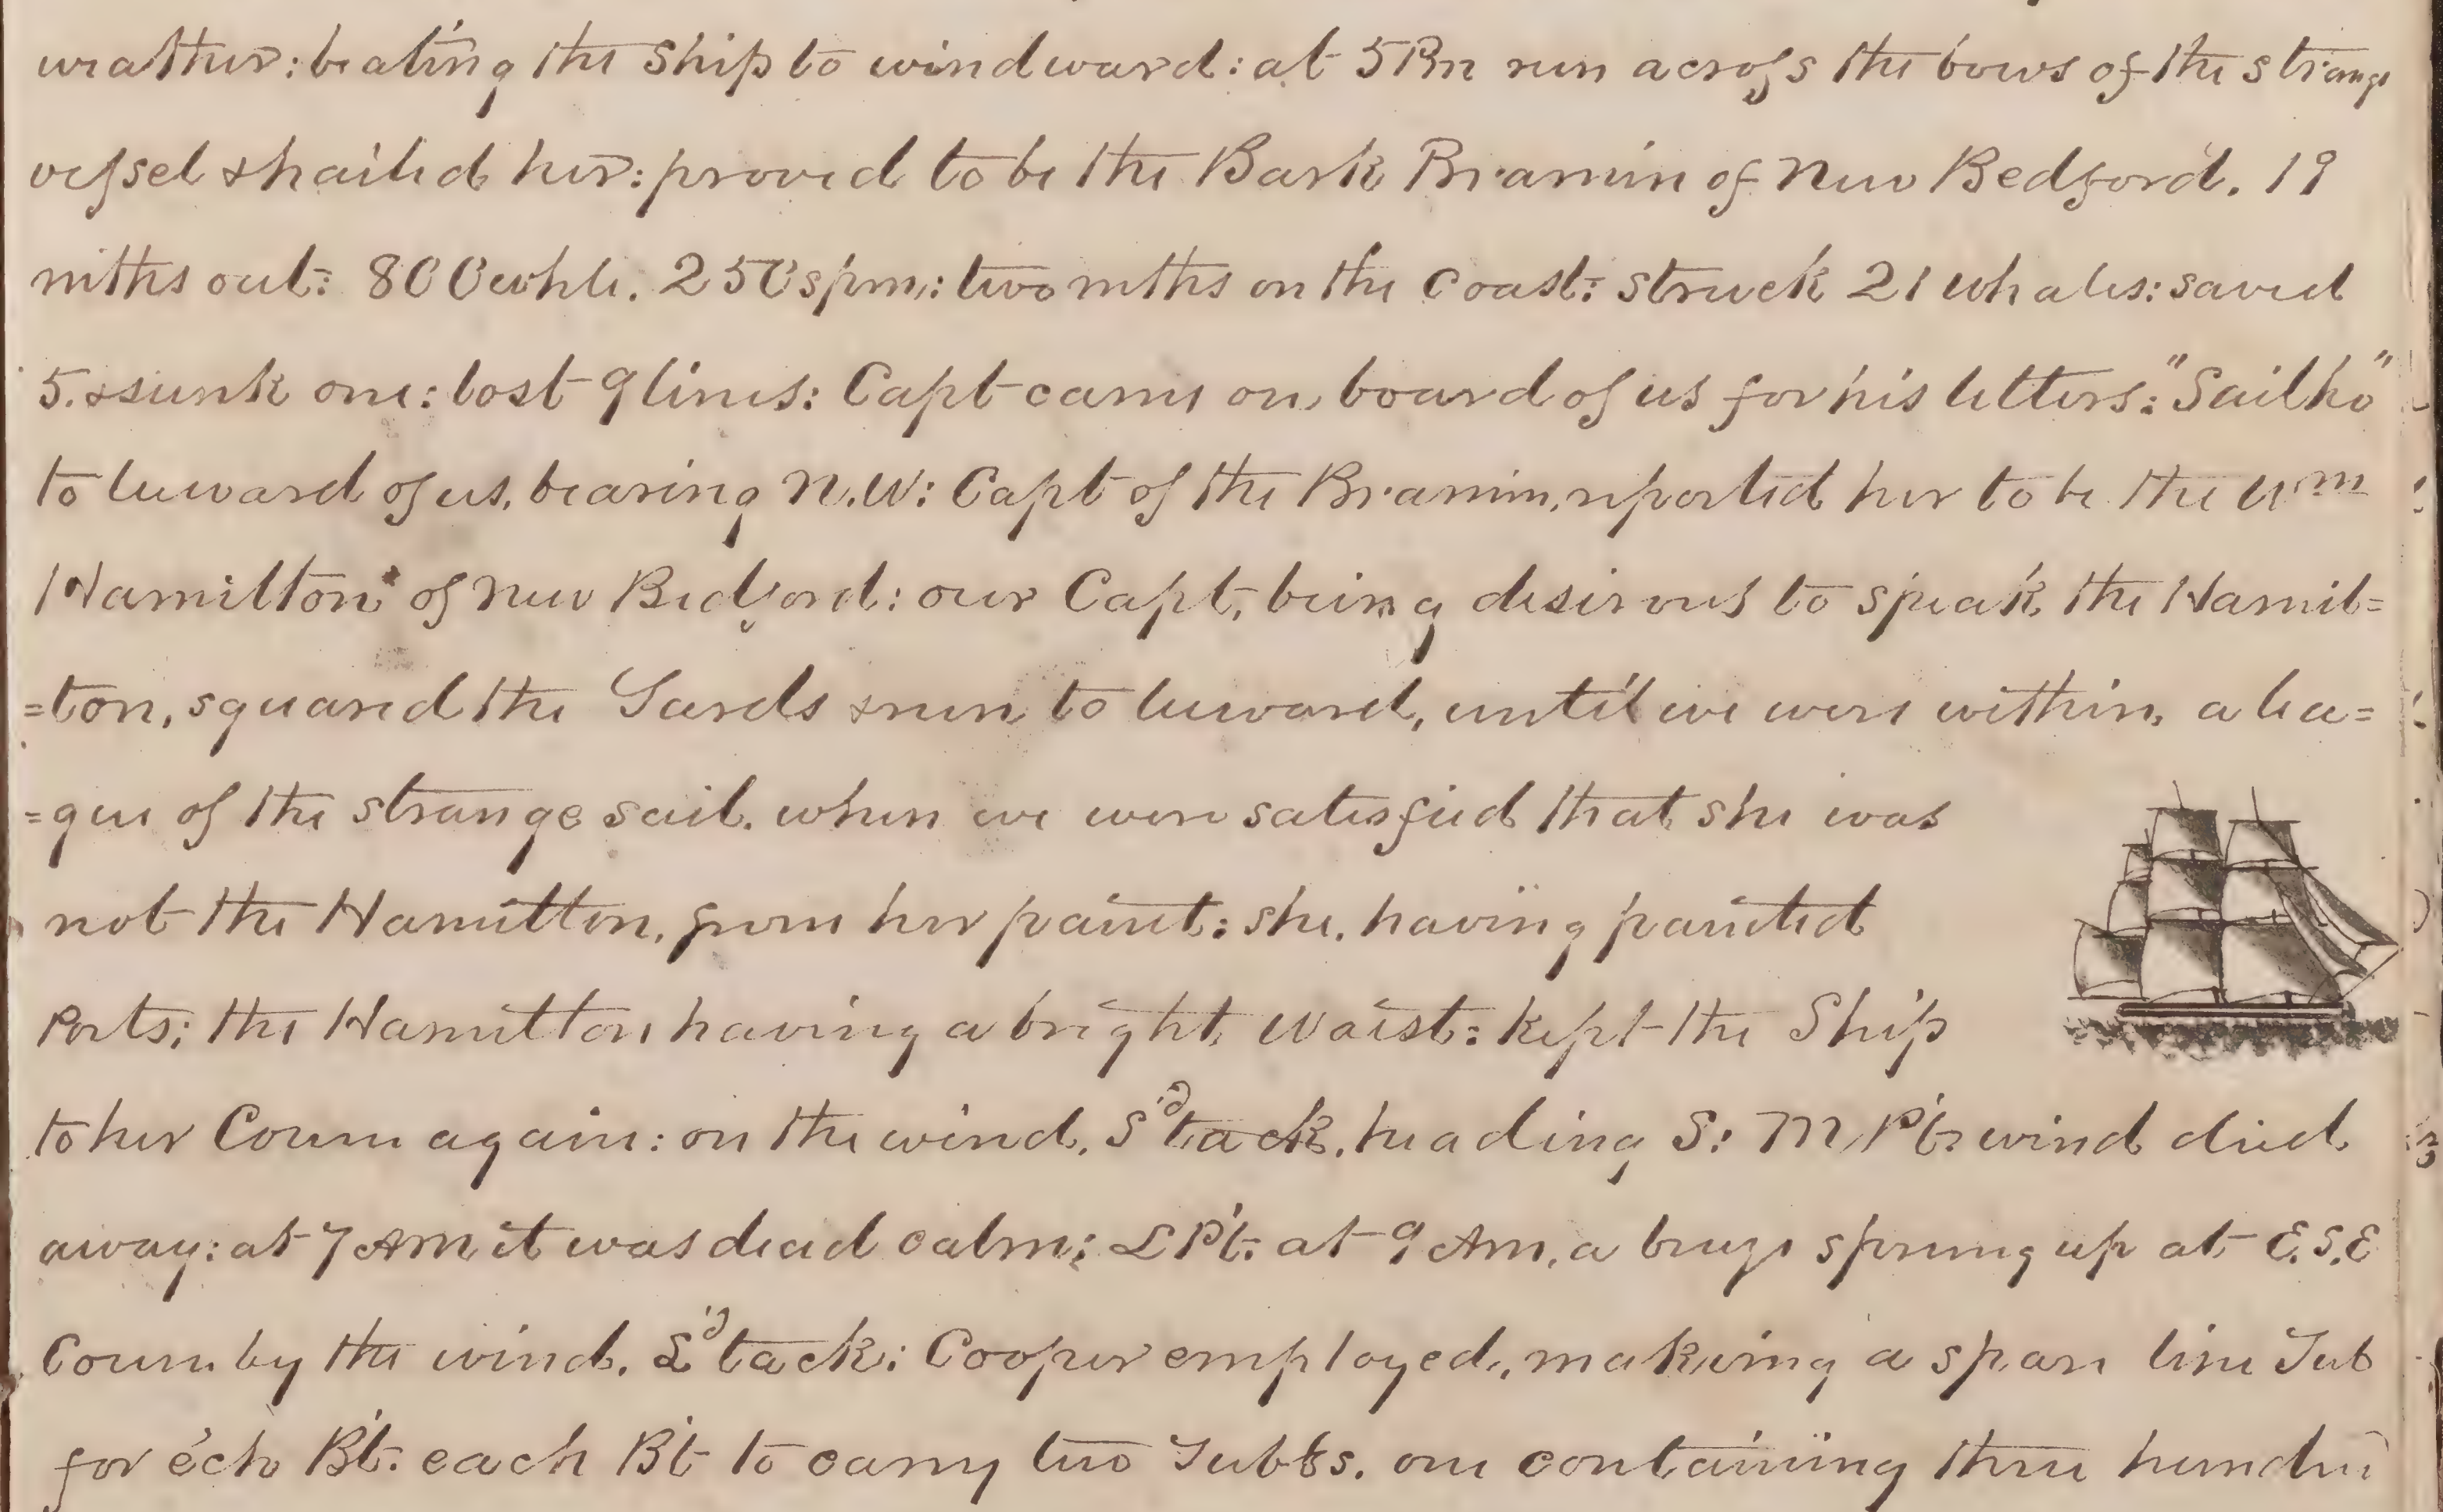 weather: beating the Ship to windward: at 5 Pm run across the bows of the strange
vessel & hailed her: proved to be the Bark Bramin of New Bedford. 19
mths out: 800 whle. 250 spm: two mths on the Coast: struck 21 Whales: saved
5. & sunk one: lost 9 lines: Capt came on board of us for his letters: "Sail ho"
to leeward of us, bearing N.W: Capt of the Bramin, reported her to be the Wm
Hamilton of New Bedford: our Capt, being desirous to speak the Hamil=
=ton, squared the Yards & run to leeward, until we were within, a lea=
=gue of the strange sail. when we were satisfied that she was
not the Hamilton, from her paint: she, having painted
Ports; the Hamilton having a bright Waist: kept the Ship
to her Course again: on the wind, S'd tack, heading S: M P't: wind died
away: at 7 AM it was dead calm; L P't: at 9 Am, a breeze sprung up at E.S.E
Course by the wind, L'd tack: Cooper employed, making a spare line Tub
for each B't: each B't to carry two Tubbs. one containing three hundred